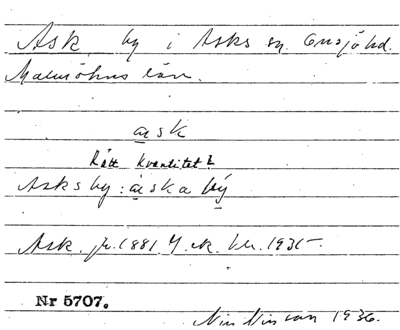 Ask, by i Asks sn. Onsjö hd.
Malmöhus län.
ask
Rätt kvantitet?
Asks by: aska bý
Ask. jr. 1881 1931
Nr 5707.
1936.